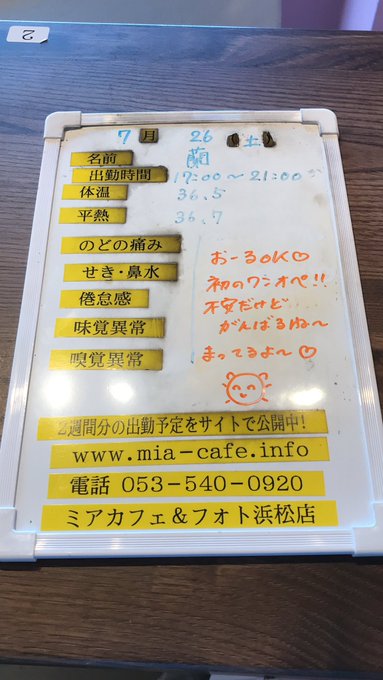 2
7月 26 (土)
名前 繭
出勤時間 17:00〜21:00
体温 36.5
平熱 36.7
のどの痛み
せき・鼻水
倦怠感
味覚異常
嗅覚異常
おーるOK♡
初のワンオペ!!
不安だけど
がんばるね〜
まってるよ〜♡
2週間分の出勤予定をサイトで公開中!
www.mia-cafe.info
電話 053-540-0920
ミアカフェ&フォト浜松店